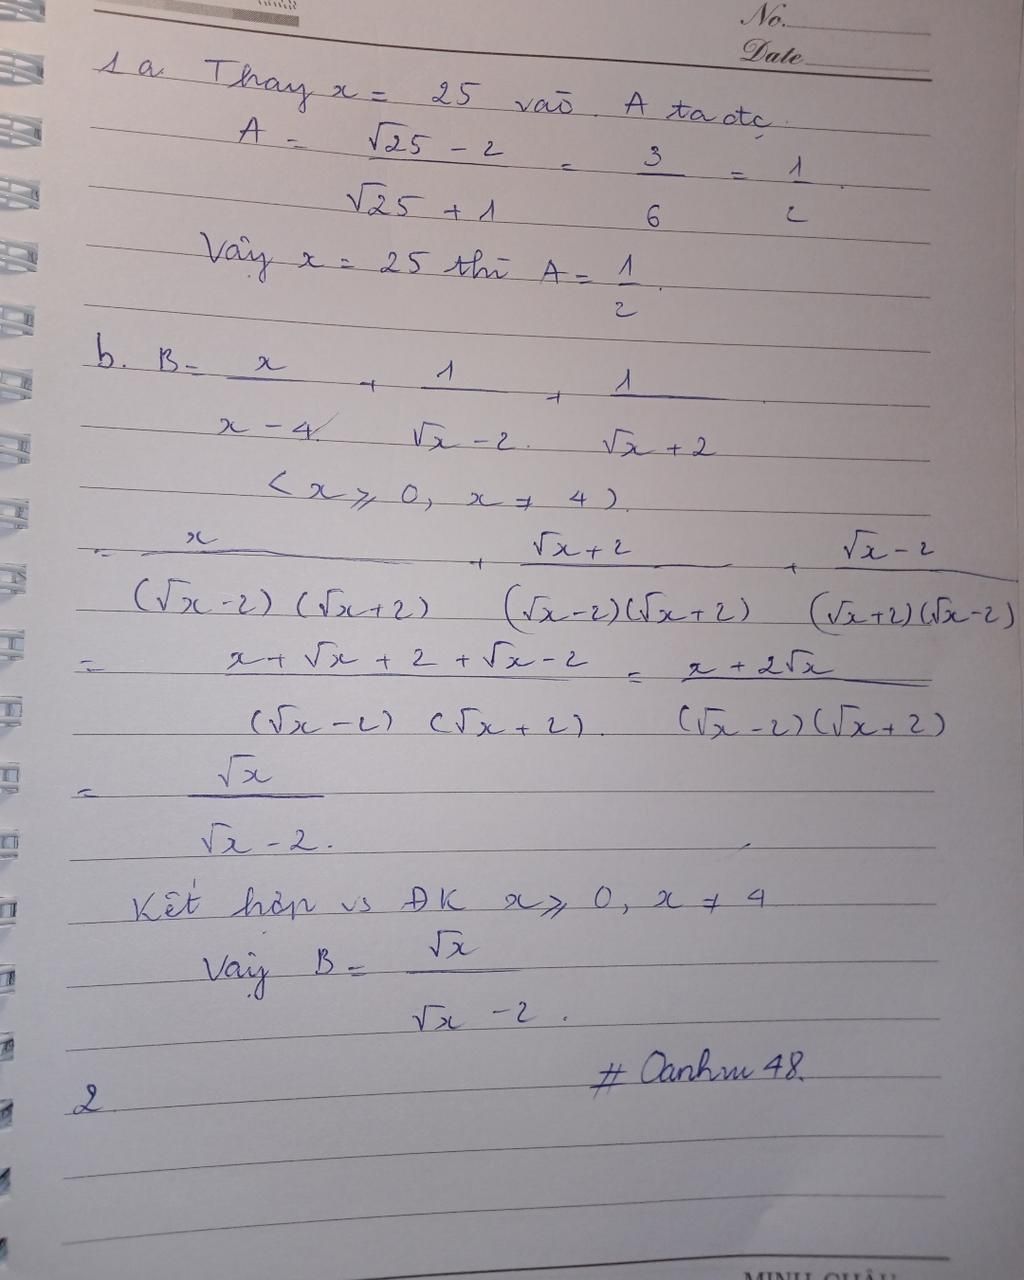 No.
Date
1 a. Thay x = 25 vào A ta đc
A = (√25 - 2)/(√25 + 1) = 3/6 = 1/2.
Vậy x = 25 thì A = 1/2.
b. B = x/(x - 4) + 1/(√x - 2) + 1/(√x + 2)
(x ⩾ 0, x ≠ 4).
= x/((√x - 2)(√x + 2)) + (√x + 2)/((√x - 2)(√x + 2)) + (√x - 2)/((√x + 2)(√x - 2))
= (x + √x + 2 + √x - 2)/((√x - 2)(√x + 2)) = (x + 2√x)/((√x - 2)(√x + 2))
= √x/(√x - 2).
Kết hợp vs ĐK x ⩾ 0, x ≠ 4
Vậy B = √x/(√x - 2).
# Oanhm 48.
2
MINH CHÂU